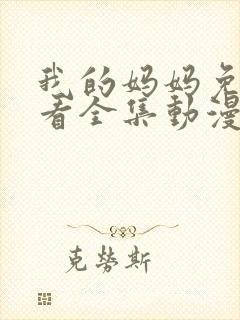 我的妈妈免
看全集動漫
克勞斯